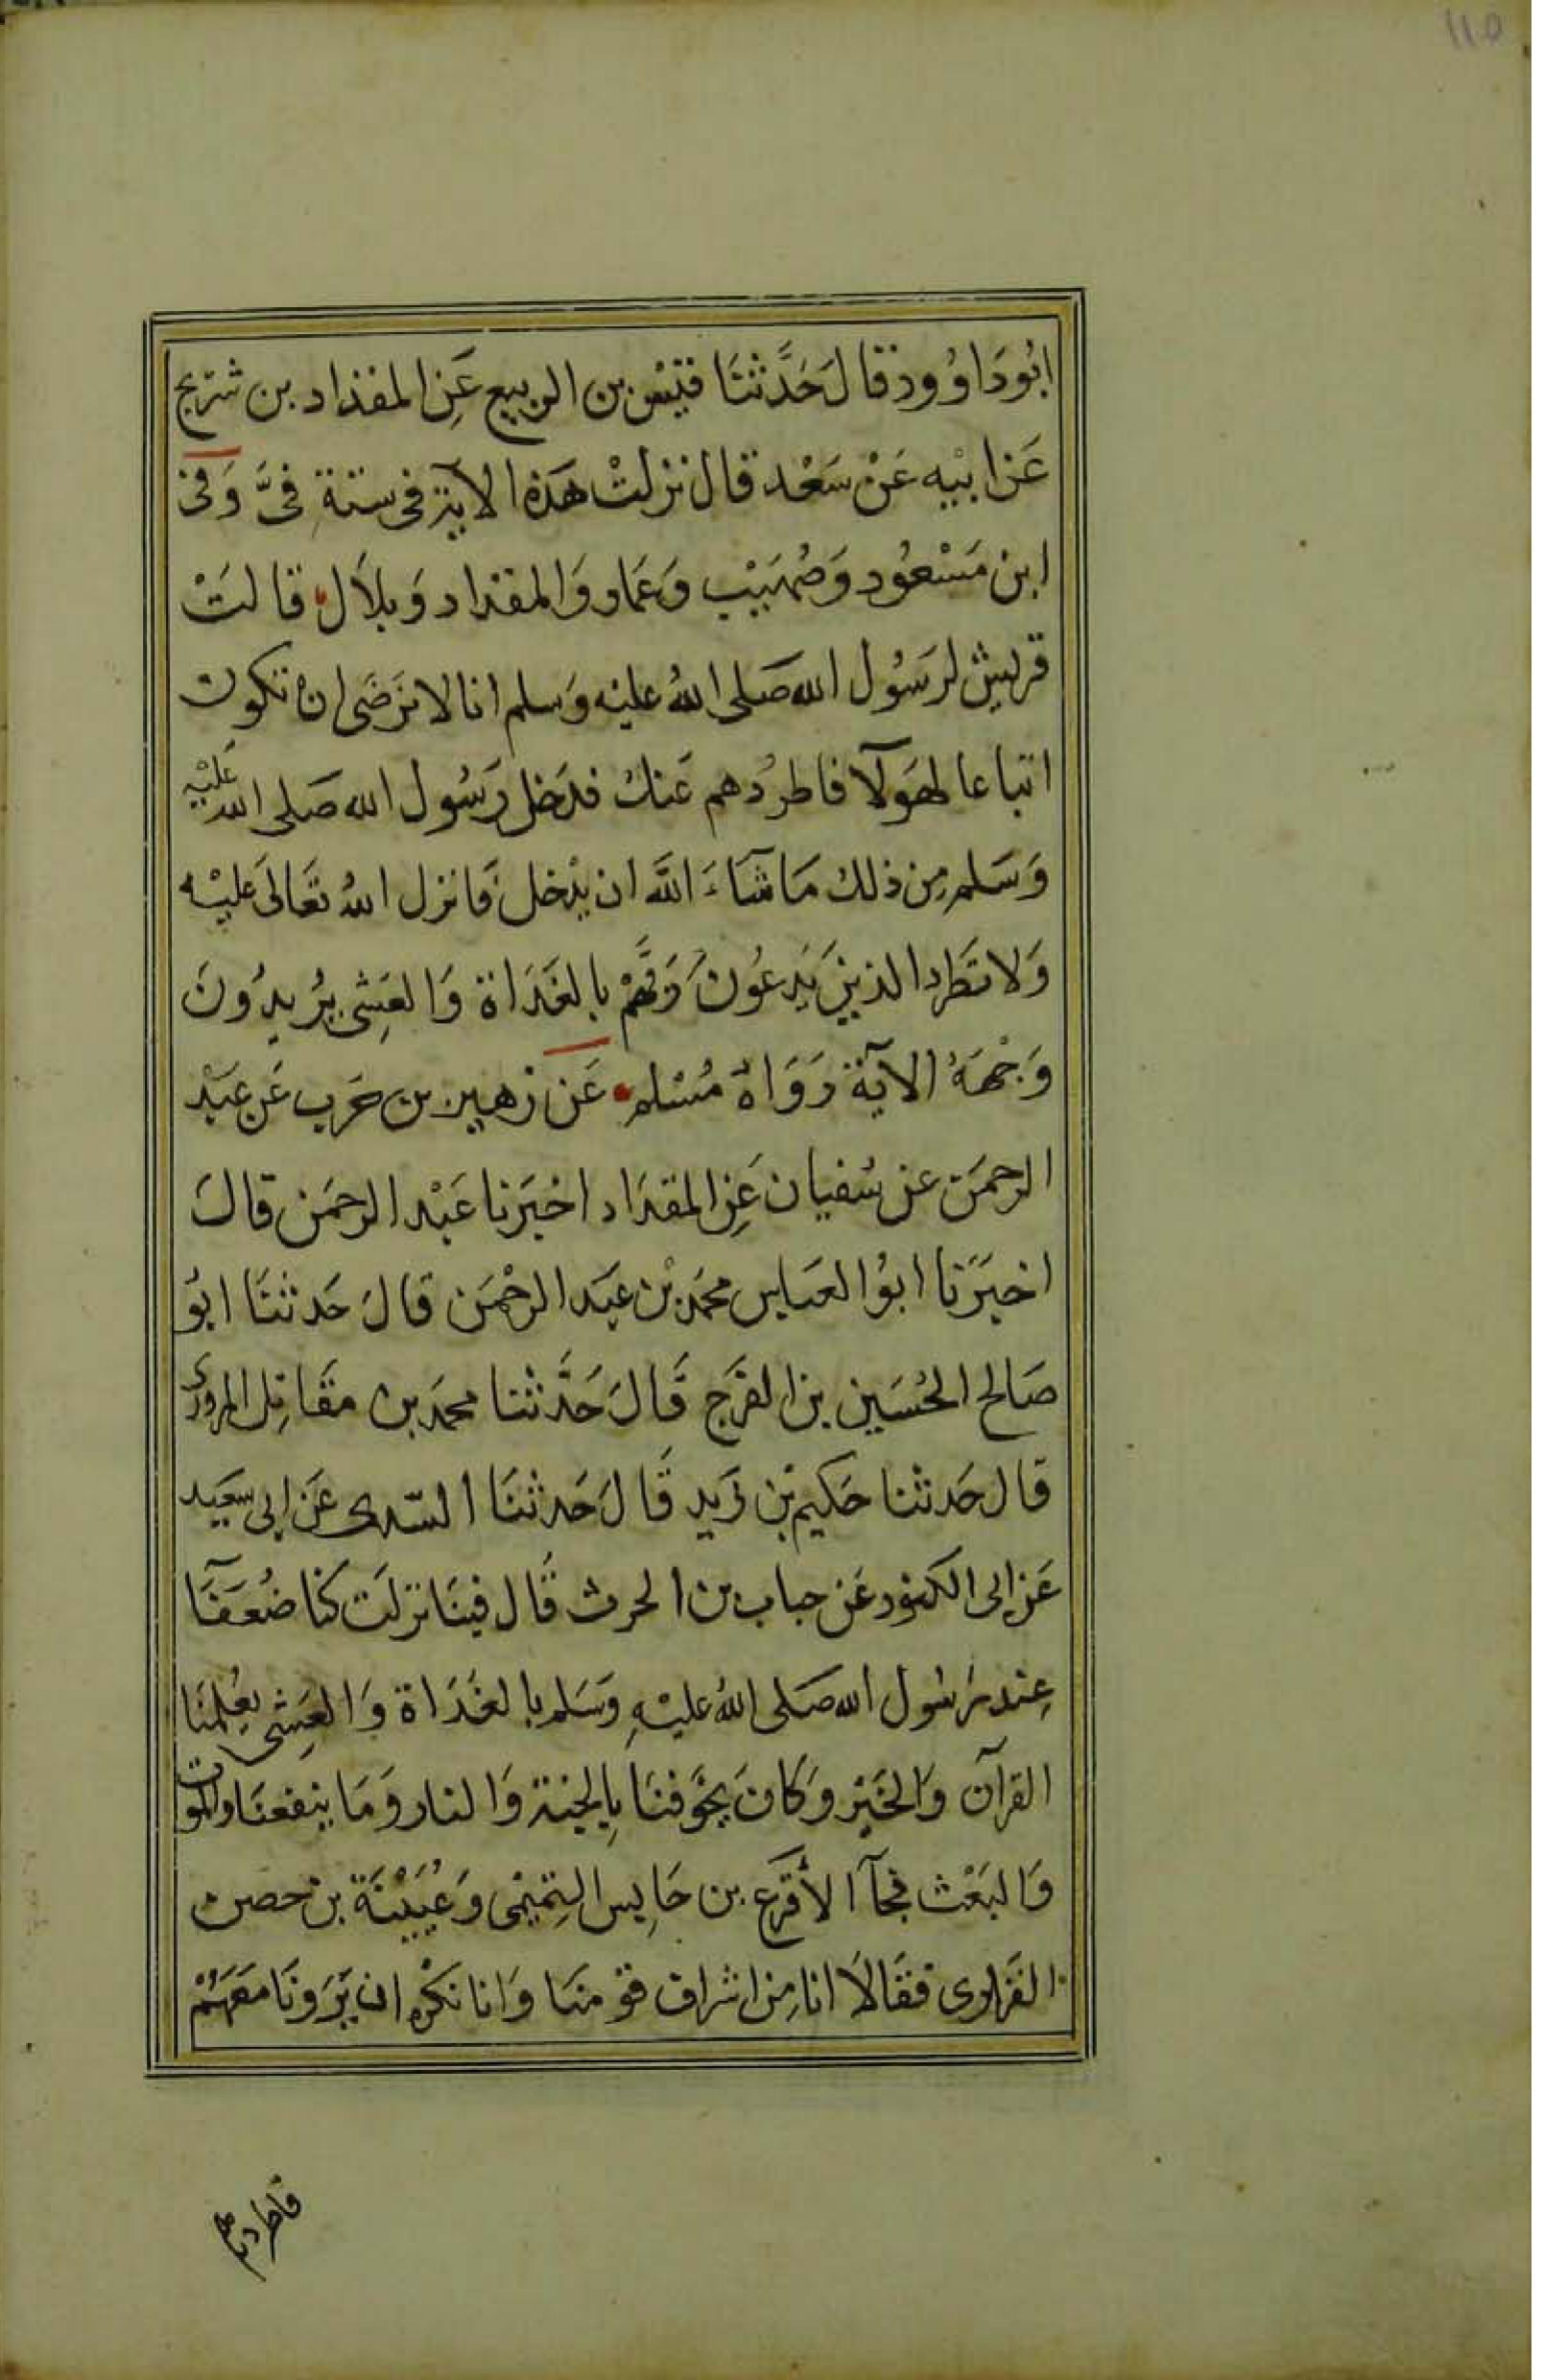 ١١٥
ابُودَاوُود قَالَ حَدَّثنَا قيْس بن الربيع عَنِ المقداد بن شريح
عَن ابيْه عَنْ سَعْد قال نزلتْ هَذه الآية فى ستة فىَّ وَفى
ابن مَسْعُود وَصُهَيْب وَعَمار وَالمقداد وَبلاَل قالتْ
قريش لرَسُول الله صَلى اللهُ عليْه وَسلم انا لا نرَضَى ان نكون
اتباعا لهَولآ فاطردُهم عَنك فدَخل رَسُول الله صَلى الله عَليْه
وَسَلم مِن ذلك مَا شآءَ اللَّه ان يدْخل فَانزل اللهُ تعَالىَ عَليْه
وَلا تَطرد الذينَ يَدعُونَ رَبَّهُمْ بالغَدَاة وَالعَشِى يرُيدُونَ
وَجْهَهُ الآية رَوَاهُ مُسْلم عَن زهير بن حَرب عَن عَبْد
الرحمَن عن سُفيان عَنِ المقدَاد اخبَرنا عَبْد الرحمَن قالَ
اخبَرَنا ابوُ العَباس محَمد بْن عَبَد الرحْمَن قالَ حَدثنَا ابوُ
صَالح الحُسَين بن الفرَج قَالَ حَدَّثنا محمَد بن مقَاتِل المروزى
قال حَدثنا حَكيم بْن زَيد قَالَ حَدثنَا السّدى عَن ابى سعَيد
عَن ابى الكنود عَن خباب بن الحرث قَال فينَا نزلَت كنا ضُعَفَآ
عِند رَسُول الله صَلى اللهُ عليْهِ وَسَلم بالغَدَاة وَالعَشِى يعُلمنَا
القرآن وَالخَيْر وَكانَ يخَوفنَا بِالجنة وَالنار وَمَا ينفعنَا والموت
وَالبَعْث فجآ الأقرَع بن حَابِس التِميمْى وَعُيَيْنَة بن حصن
الفَزاوى فقَالاَ انا مِن اشراف قوْمنَا وَانا نكْره ان يَرَونَا مَعَهَمُْ
فاطردهم